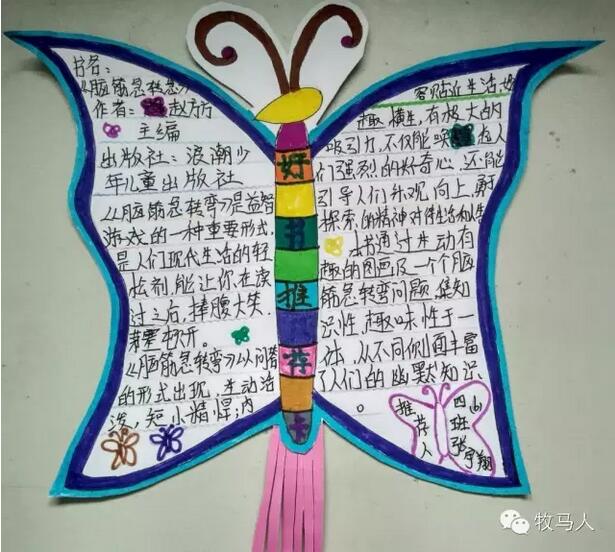 书名：
《脑筋急转弯》
作者：赵方方
主编
出版社：浪潮少
年儿童出版社
《脑筋急转弯》是益智
游戏的一种重要形式，
是人们现代生活的轻
松剂，能让你在读
过之后，捧腹大笑，
茅塞顿开。
《脑筋急转弯》以问答
的形式出现，生动活
泼，短小精悍；内
好
书
推
荐
卡
容贴近生活，妙
趣横生，有极大的
吸引力，不仅能唤起人
们强烈的好奇心，还能
引导人们乐观向上，勇于
探索的精神对待生活和人生
本书通过生动有
趣的图画及一个个脑
筋急转弯问题，集知
识性，趣味性于一
体，从不同侧面丰富
了人们的幽默知识
。
推荐人
四山
班
张宇翔
牧马人